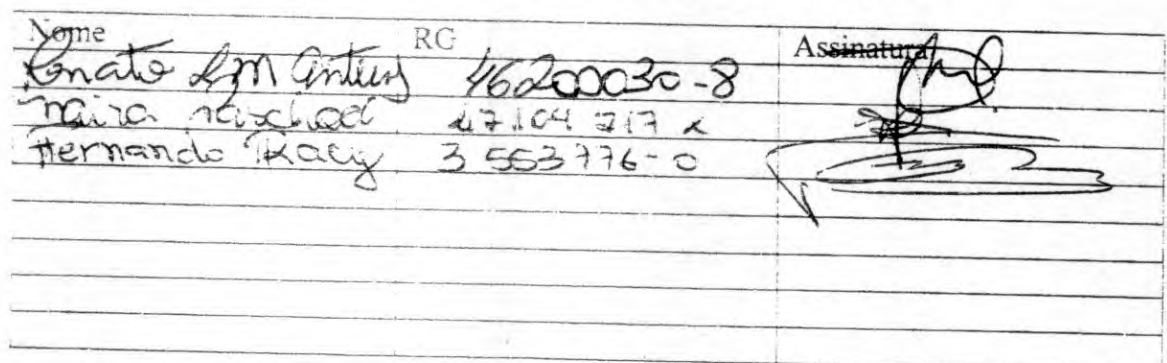 Nome RG Assinatura
Renato LM Antunes 46200030-8
Naira 47.104 717 x
Hernando 3 553776-0